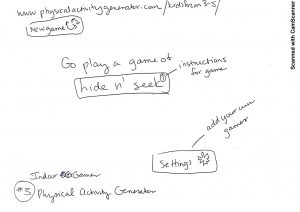 www.physicalactivitygenerator.com/kidsfrom3-5/
New game
Go play a game of
hide n' seek
instructions
for game
add your own
games
Settings
Indoor Games
#3 Physical Activity Generator
Scanned with CamScanner